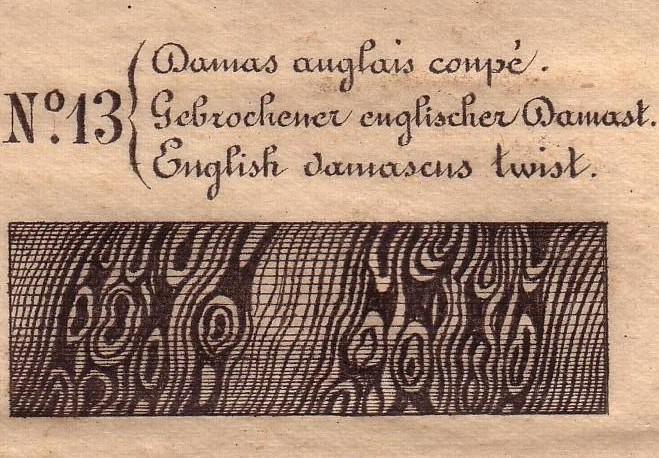 Nº 13
Damas anglais coupé.
Gebrochener englischer Damast.
English damascus twist.